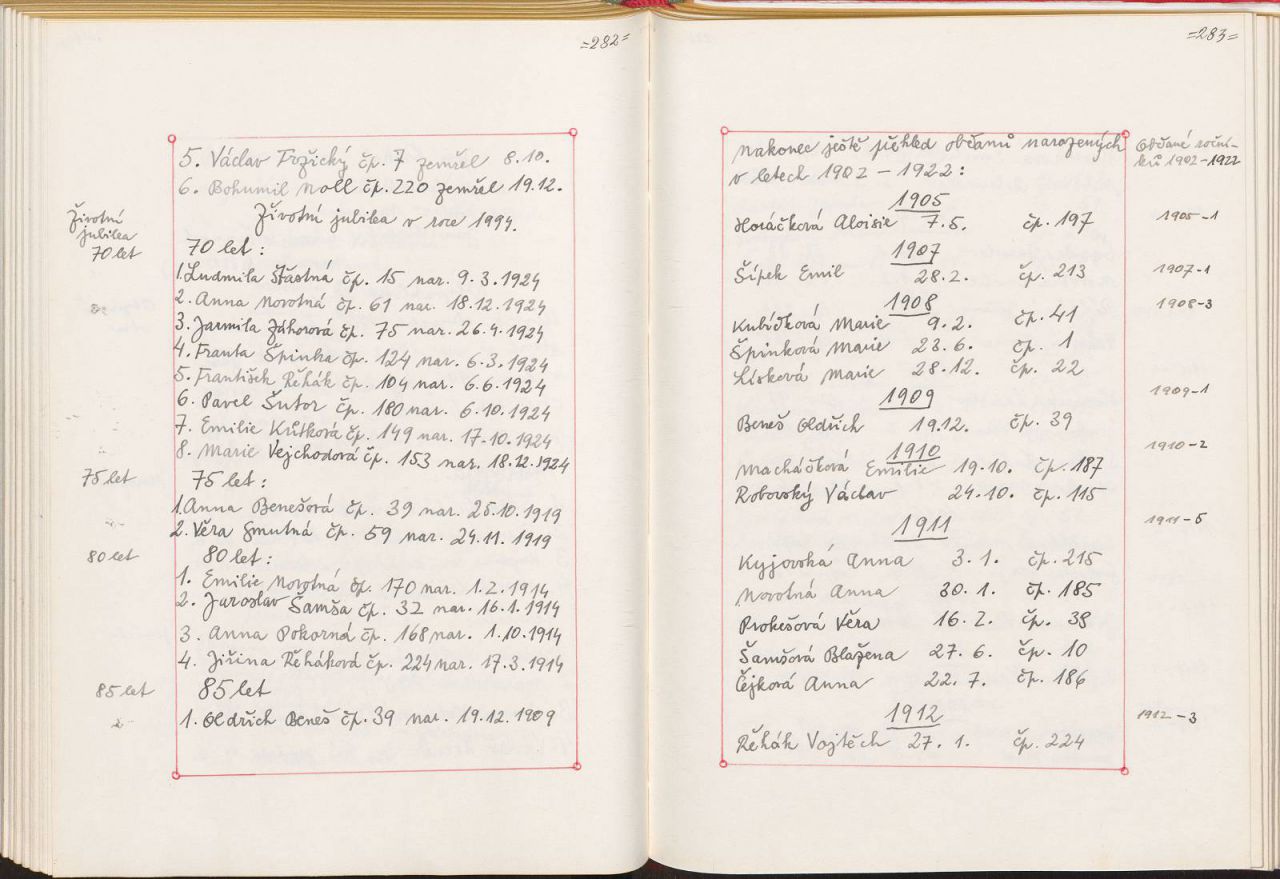 =282=
5. Václav Tožický čp. 7 zemřel 8.10.
6. Bohumil Noll čp. 220 zemřel 19.12.
Životní jubilea v roce 1994.
Životní
jubilea
70 let
70 let :
1. Ludmila Šťastná čp. 15 nar. 9.3.1924
2. Anna Novotná čp. 61 nar. 18.12.1924
3. Jarmila Záhorová čp. 75 nar. 26.4.1924
4. Franta Špinka čp. 124 nar. 6.3.1924
5. František Řehák čp. 104 nar. 6.6.1924
6. Pavel Šutor čp. 180 nar. 6.10.1924
7. Emilie Kůtková čp. 149 nar. 17.10.1924
8. Marie Vejchodová čp. 153 nar. 18.12.1924
75 let
75 let :
1. Anna Benešová čp. 39 nar. 25.10.1919
2. Věra Smutná čp. 59 nar. 24.11.1919
80 let
80 let :
1. Emilie Novotná čp. 170 nar. 1.2.1914
2. Jaroslav Šamša čp. 32 nar. 16.1.1914
3. Anna Pokorná čp. 168 nar. 1.10.1914
4. Jiřina Řeháková čp. 224 nar. 17.3.1914
85 let
85 let
1. Oldřich Beneš čp. 39 nar. 19.12.1909
=283=
Nakonec ještě přehled občanů narozených
v letech 1902 - 1922 :
Občané roční-
ků 1902-1922
1905
Horáčková Aloisie 7.5. čp. 197
1905-1
1907
Šípek Emil 28.2. čp. 213
1907-1
1908
1908-3
Kubíčková Marie 9.2. čp. 41
Špinková Marie 23.6. čp. 1
Lísková Marie 28.12. čp. 22
1909
1909-1
Beneš Oldřich 19.12. čp. 39
1910
1910-2
Macháčková Emilie 19.10. čp. 187
Robovský Václav 24.10. čp. 115
1911
1911-5
Kyjovská Anna 3.1. čp. 215
Novotná Anna 30.1. čp. 185
Prokešová Věra 16.2. čp. 38
Šamšová Blažena 27.6. čp. 10
Čejková Anna 22.7. čp. 186
1912
1912-3
Řehák Vojtěch 27.1. čp. 224